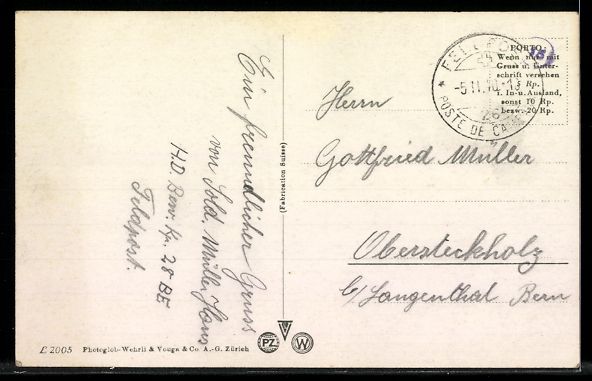 Ein freundlicher Gruss
von Sold. Müller Hans
H.D. Bew. Kp. 28 BE
Feldpost.
(Fabrication Suisse)
Herrn
Gottfried Müller
Obersteckholz
b/Langenthal Bern
PORTO:
Wenn nur mit
Gruss u. Unter-
schrift versehen
5 Rp.
i. In- u. Ausland,
sonst 10 Rp.
bezw. 20 Rp.
POSTE DE CA
-5.II.
PZ W
L 2005 Photoglob-Wehrli & Vouga & Co. A.-G. Zürich